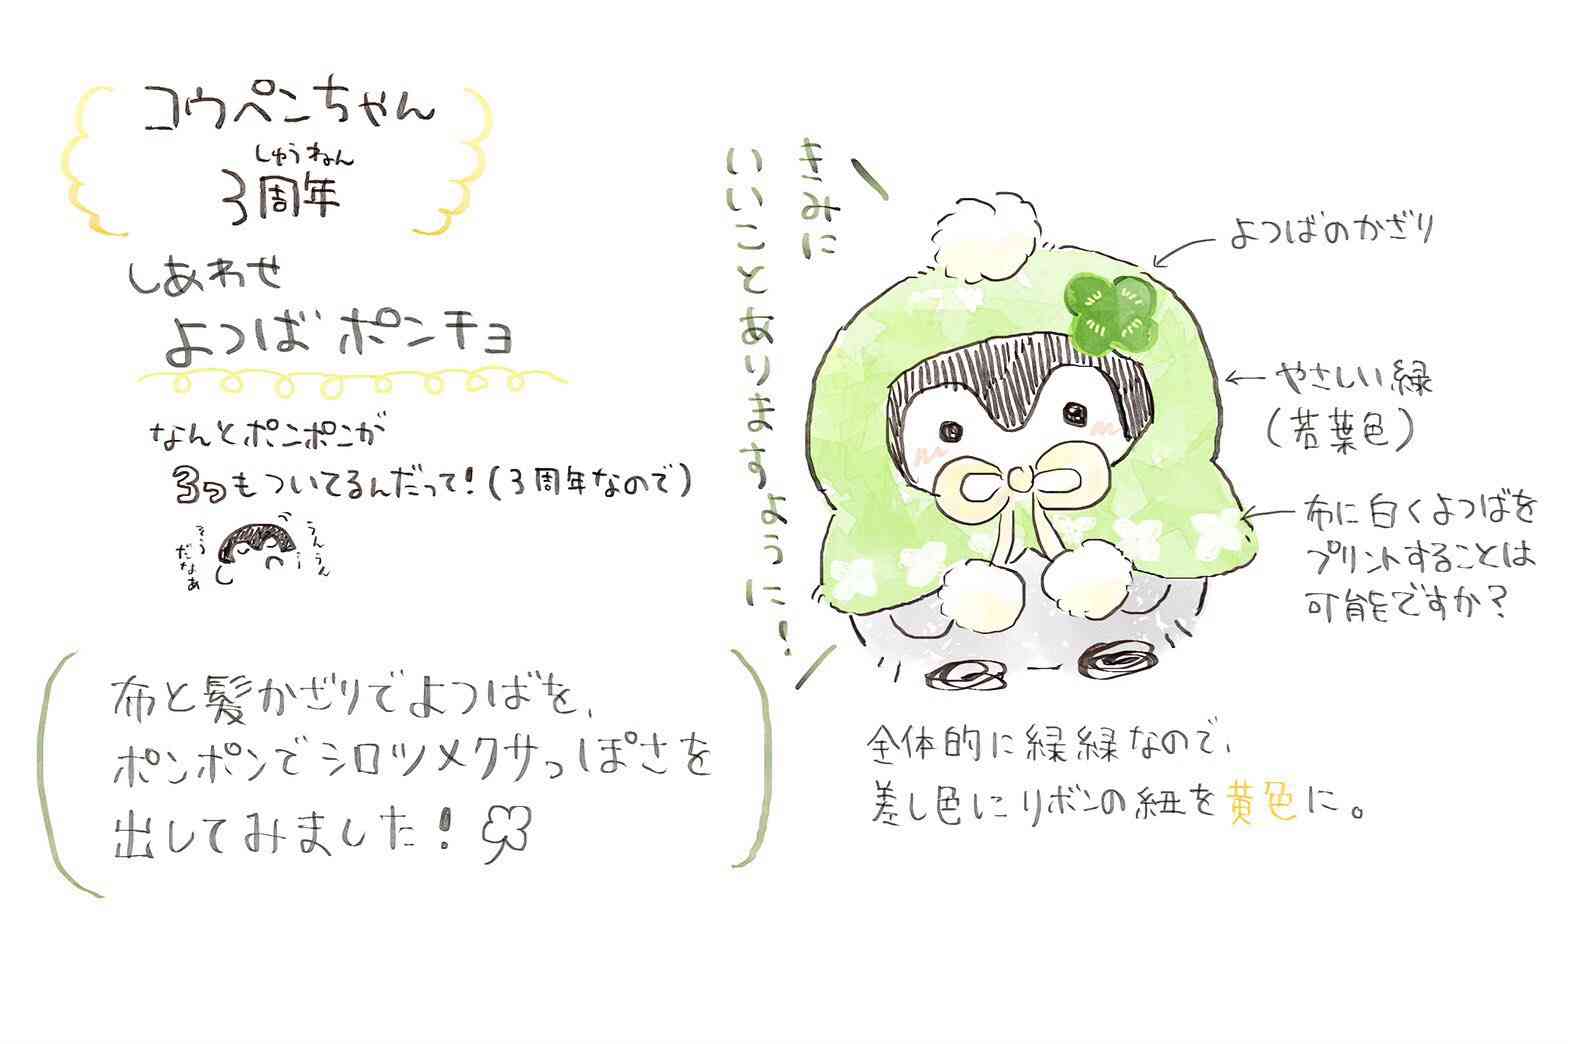 コウペンちゃん
しゅうねん
3周年
しあわせ
よつばポンチョ
なんとポンポンが
3つもついてるんだって！（3周年なので）
そう
だなあ
うんうん
布と髪かざりでよつばを、
ポンポンでシロツメクサっぽさを
出してみました！
きみに
いいことありますように！
よつばのかざり
やさしい緑
（若葉色）
布に白くよつばを
プリントすることは
可能ですか？
全体的に緑緑なので、
差し色にリボンの紐を黄色に。